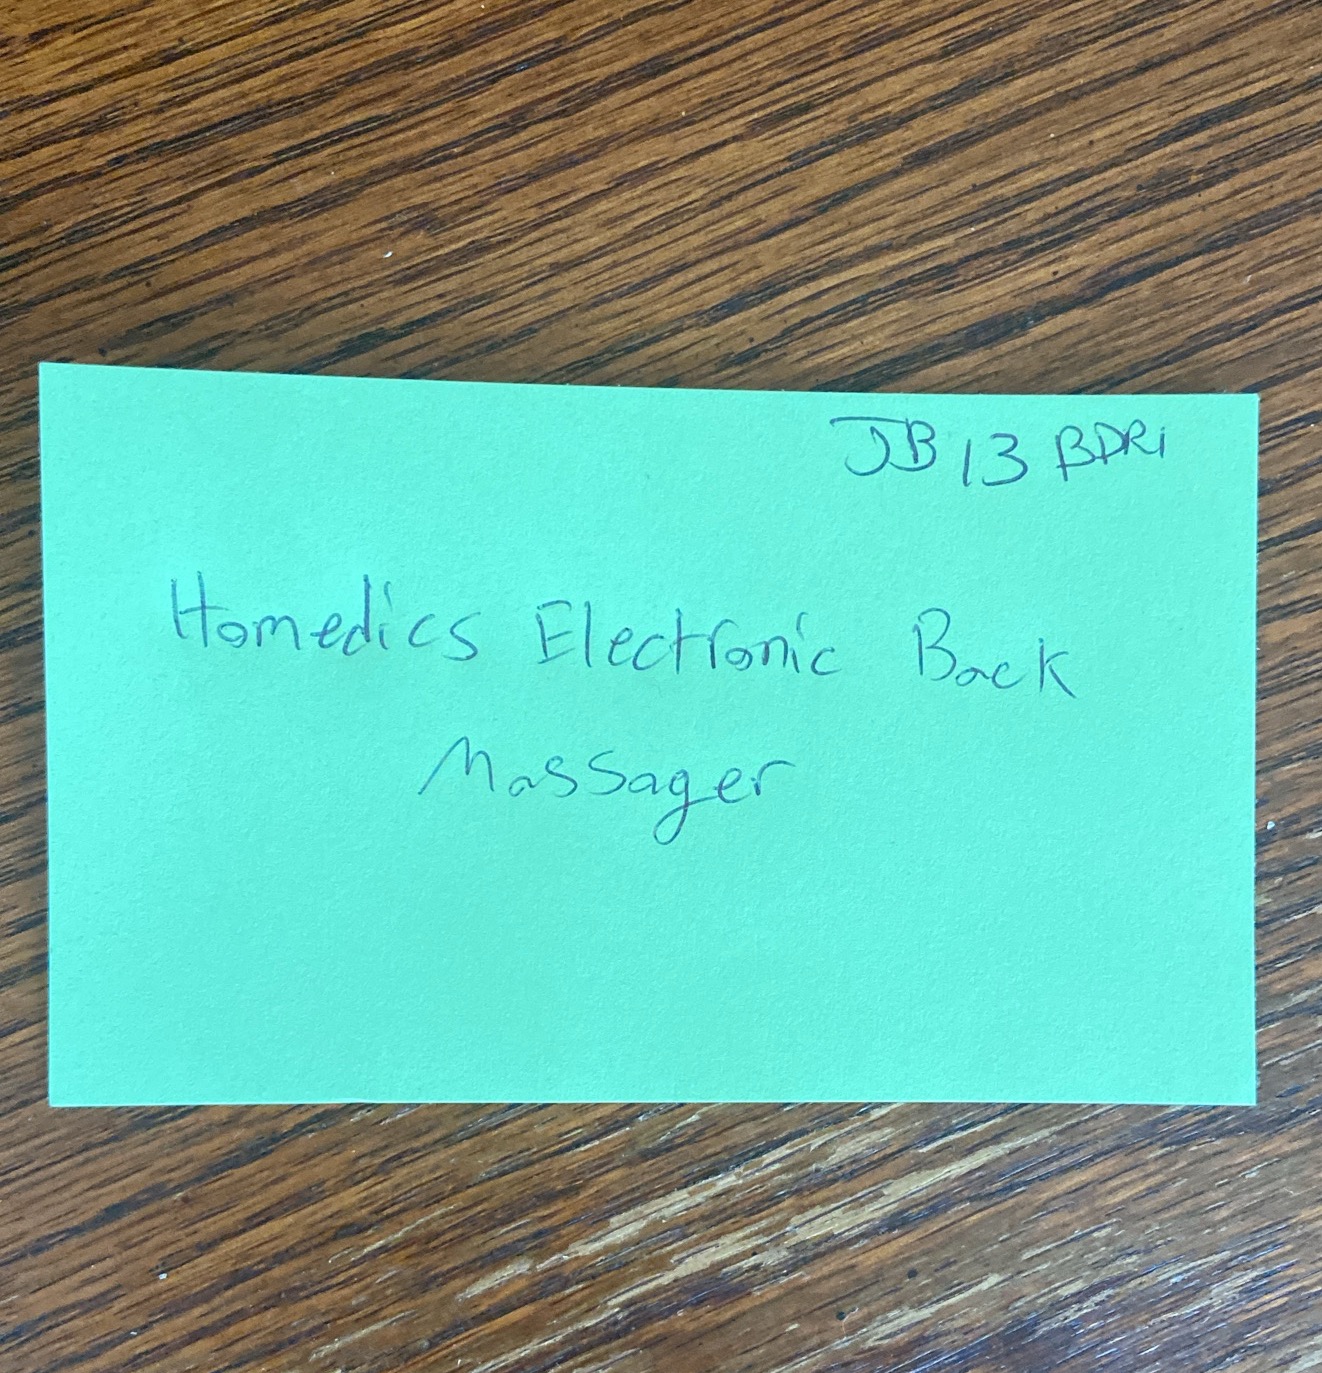 JB 13 BDR1
Homedics Electronic Back
Massager